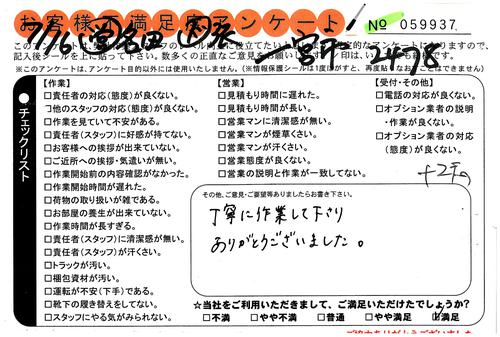 お客様不満足アンケート!
No 059937
記入後シールを上に貼って下さい。
※このアンケートは、アンケート目的以外には使用いたしません。
チェックリスト
【作業】
□責任者の対応(態度)が良くない。
□他のスタッフの対応(態度)が良くない。
□作業を見ていて不安がある。
□責任者(スタッフ)に好感が持てない。
□お客様への挨拶が出来ていない。
□ご近所への挨拶・気遣いが無い。
□作業開始前の内容確認がなかった。
□作業開始時間が遅れた。
□荷物の取り扱いが雑である。
□お部屋の養生が出来ていない。
□作業時間が長すぎる。
□責任者(スタッフ)に清潔感が無い。
□責任者(スタッフ)が汗くさい。
□トラックが汚い。
□梱包資材が汚い。
□運転が不安(下手)である。
□靴下の履き替えをしてない。
□スタッフにやる気がみられない。
【営業】
□見積もり時間に遅れた。
□見積もり時間が長い。
□営業マンに清潔感が無い。
□営業マンが煙草くさい。
□営業マンが汗くさい。
□営業態度が良くない。
□営業の説明と作業が一致してない。
【受付・その他】
□電話の対応が良くない。
□オプション業者の説明
・作業が良くない。
□オプション業者の対応
(態度)が良くない。
その他、ご意見・ご要望等ありましたらお書き下さい。
丁寧に作業して下さり
ありがとうございました。
☆当社をご利用いただきまして、ご満足いただけたでしょうか?
□不満 □やや不満 □普通 □やや満足 □満足